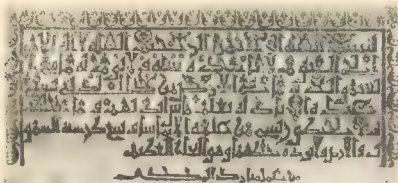 بسم الله الرحمن الرحيم الله لا اله الا
هو الحي القيوم لا تاخذه سنة ولا نوم له ما في
السموات وما في الارض من ذا الذي يشفع
عنده الا باذنه يعلم ما بين ايديهم وما خلفهم
ولا يحيطون بشي من علمه الا بما شا وسع كرسيه السمو
ات والارض ولا يوده حفظهما وهو العلي العظيم